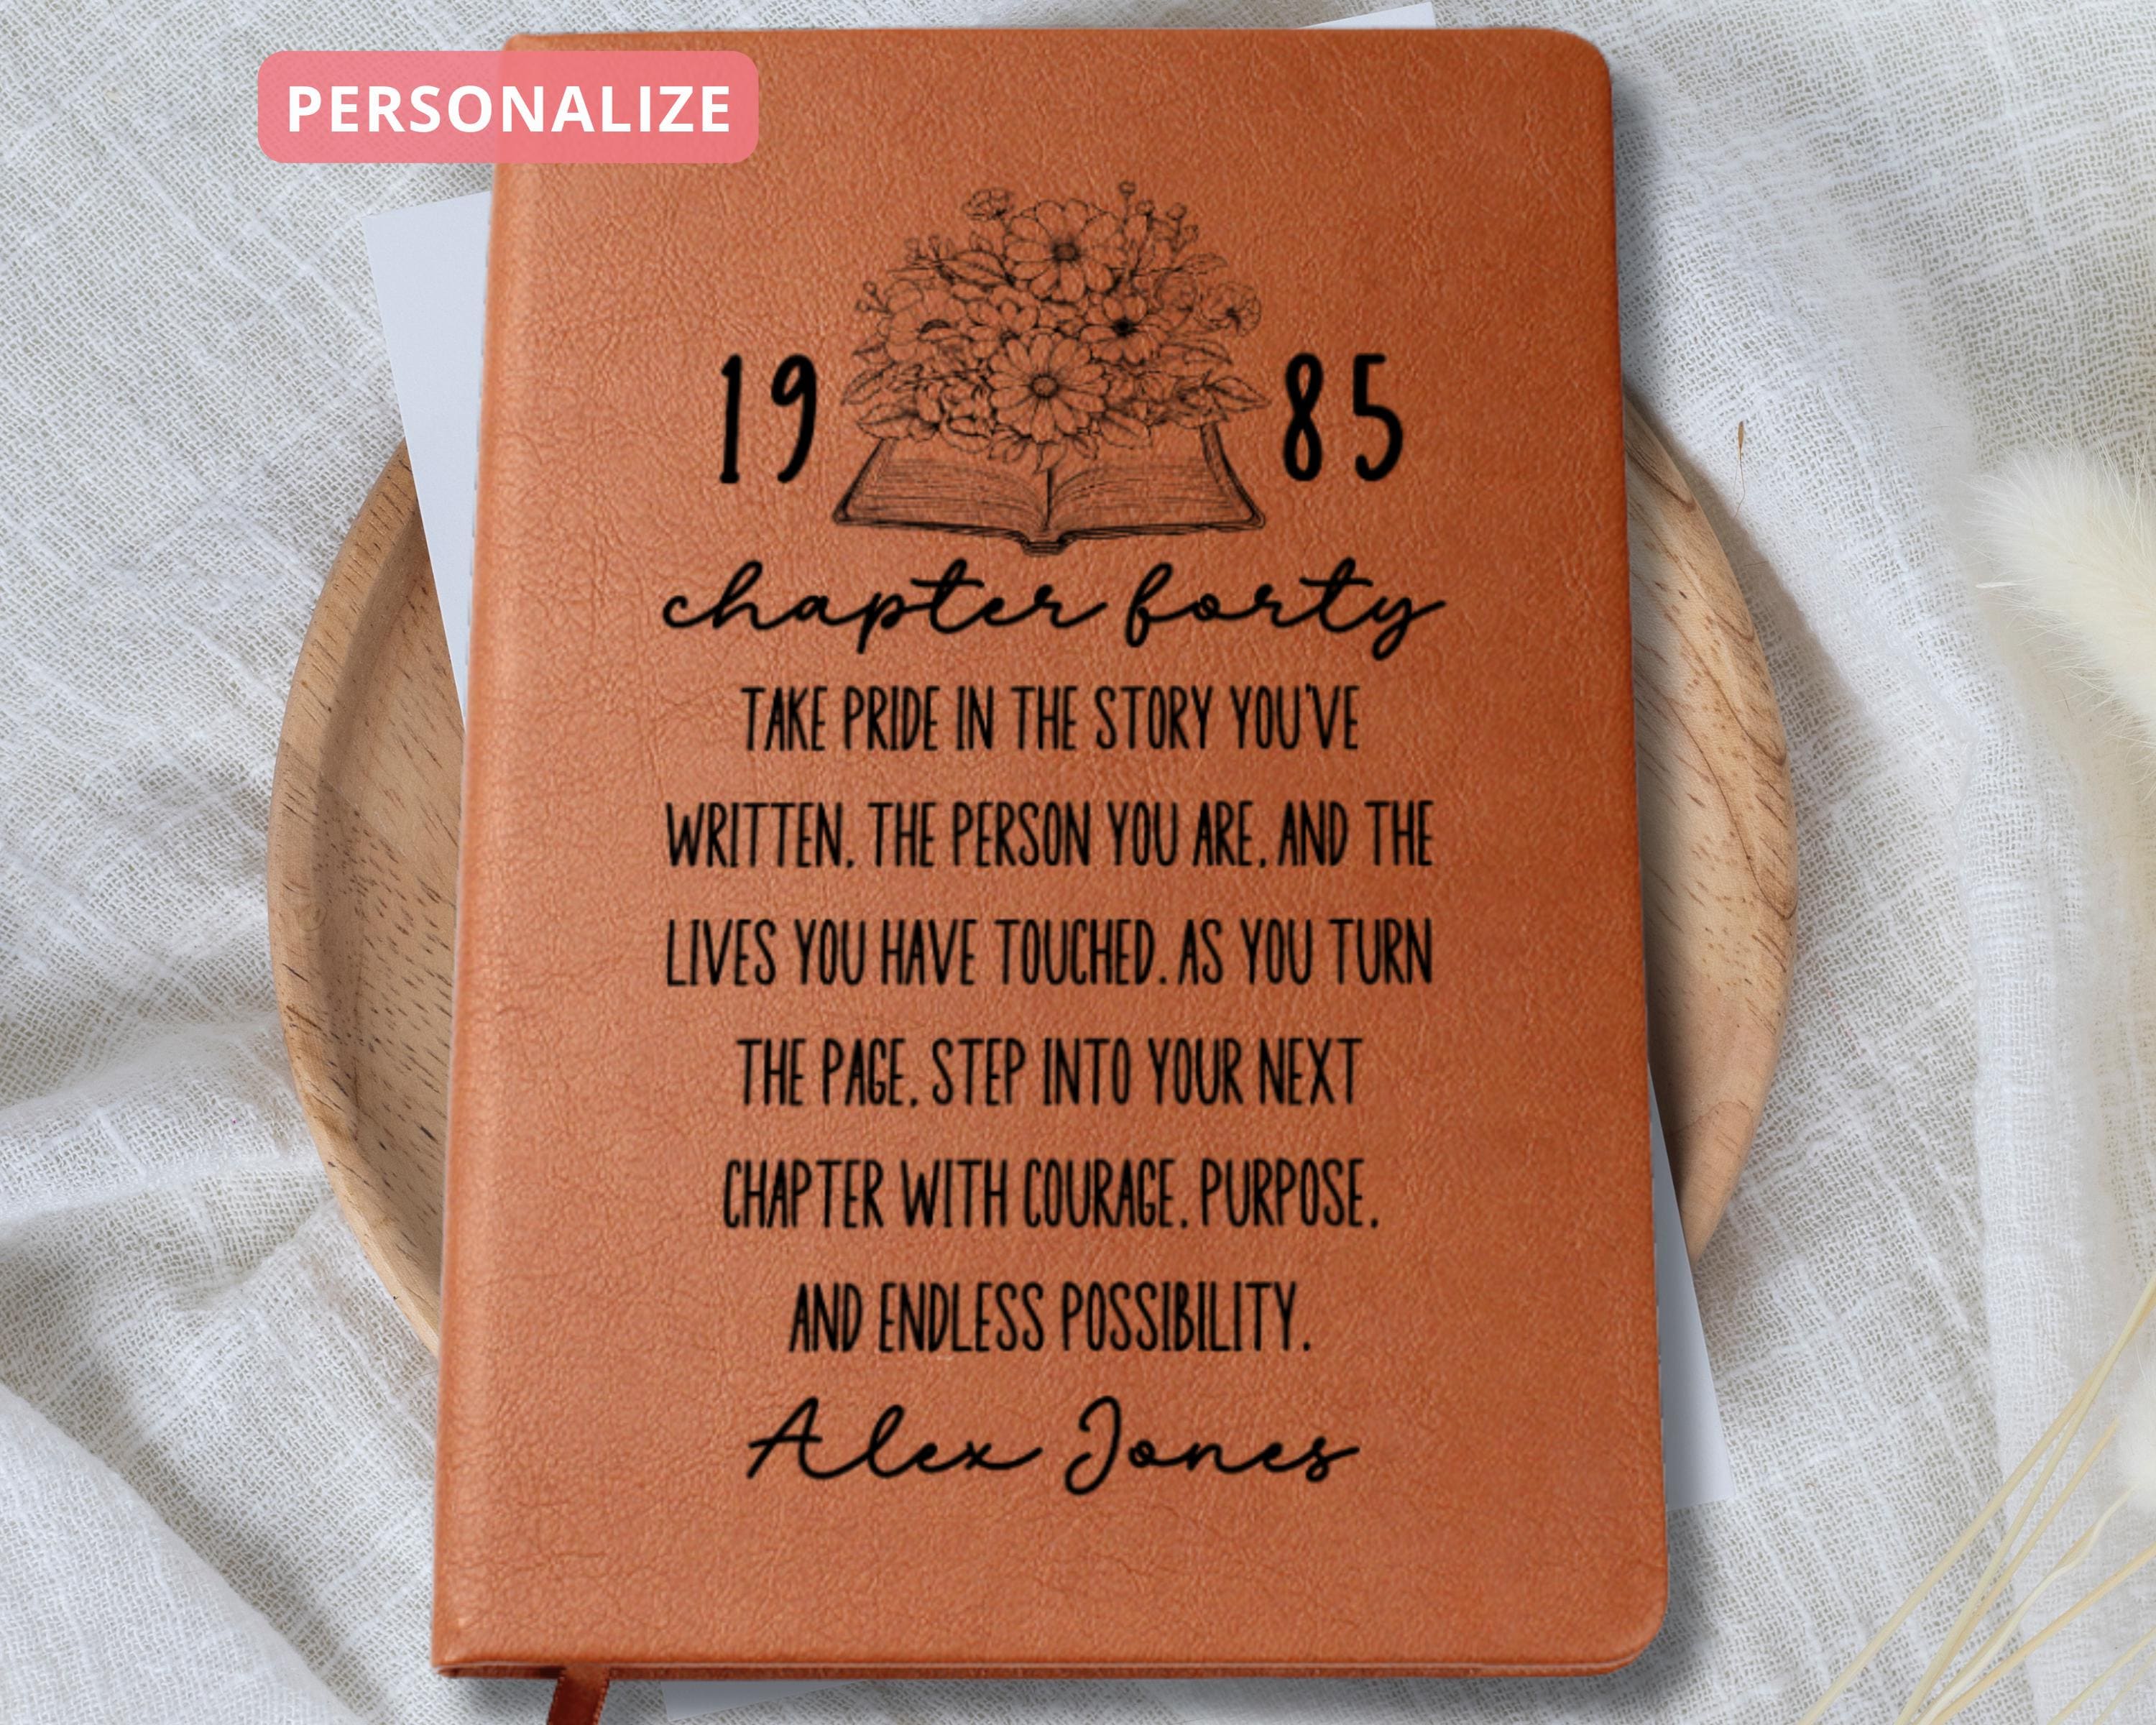 PERSONALIZE
19 85
chapter forty
TAKE PRIDE IN THE STORY YOU'VE
WRITTEN, THE PERSON YOU ARE, AND THE
LIVES YOU HAVE TOUCHED. AS YOU TURN
THE PAGE, STEP INTO YOUR NEXT
CHAPTER WITH COURAGE, PURPOSE,
AND ENDLESS POSSIBILITY.
Alex Jones